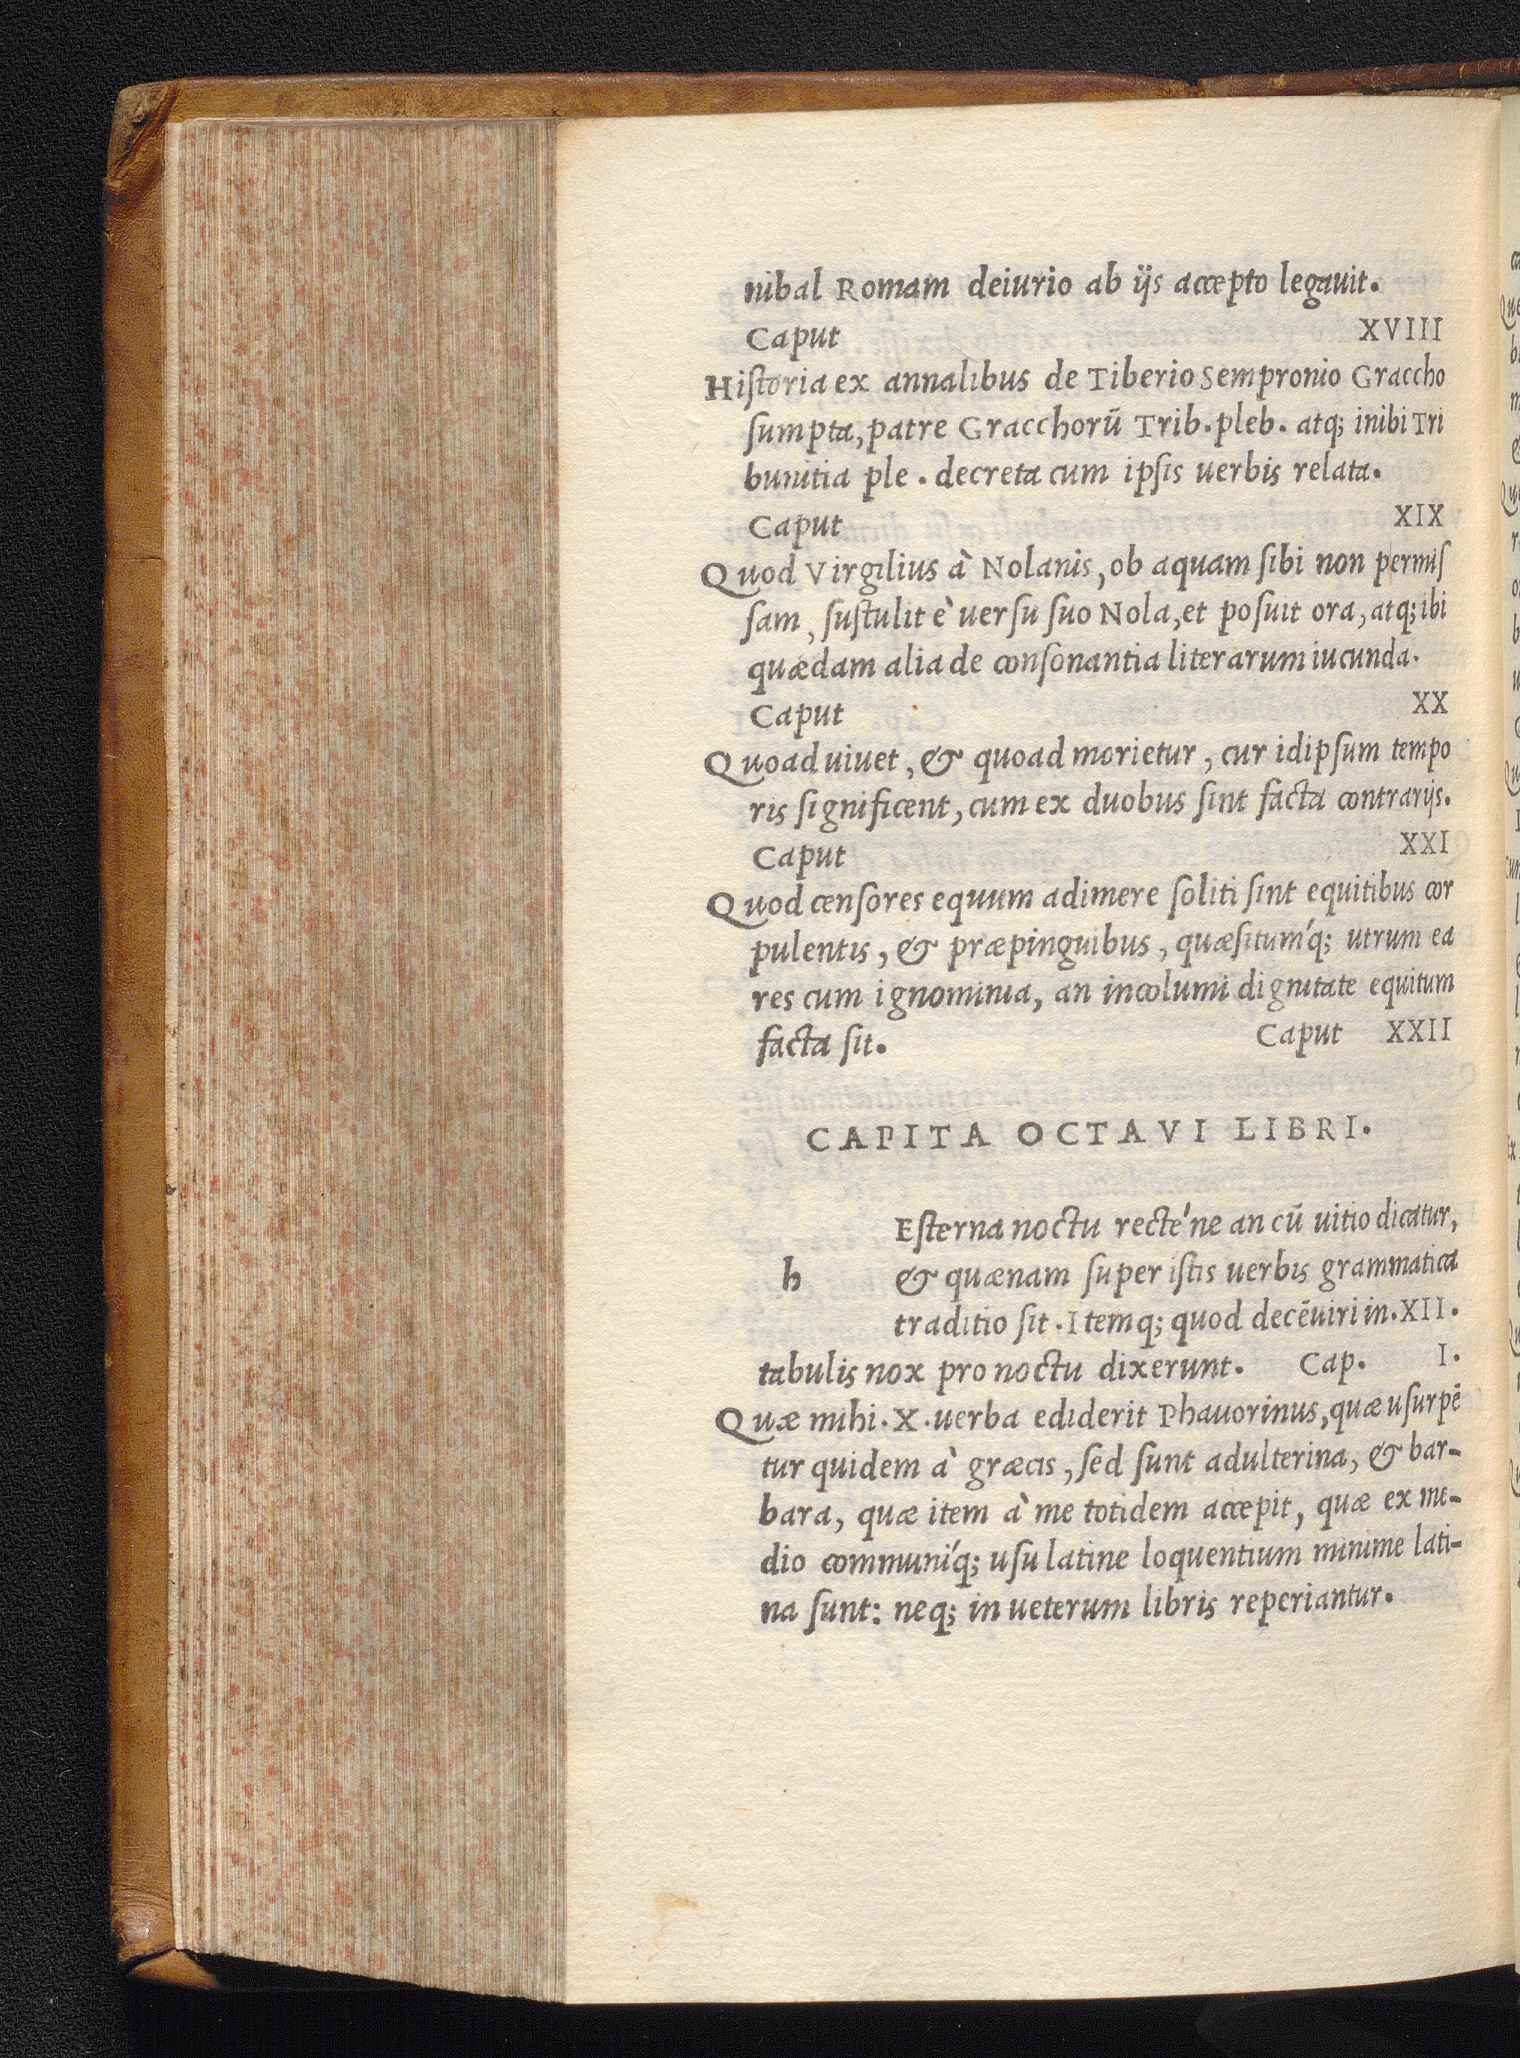 nibal Romam deiurio ab ijs accepto legauit.
Caput XVIII
Hiſtoria ex annalibus de Tiberio Sempronio Graccho
ſumpta, patre Gracchorū Trib. pleb. atq; inibi Tri
bunitia ple. decreta cum ipſis uerbis relata.
Caput XIX
Quod Virgilius à Nolanis, ob aquam ſibi non permiſ
ſam, ſuſtulit è uerſu ſuo Nola, et poſuit ora, atq; ibi
quædam alia de conſonantia literarum iucunda.
Caput XX
Quoad uiuet, & quoad morietur, cur idipſum tempo
ris ſignificent, cum ex duobus ſint facta contrarijs.
Caput XXI
Quod cenſores equum adimere ſoliti ſint equitibus cor
pulentis, & præpinguibus, quæſituḿq; utrum ea
res cum ignominia, an incolumi dignitate equitum
facta ſit. Caput XXII
CAPITA OCTAVI LIBRI.
Eſterna noctu recte´ne an cū uitio dicatur,
h & quænam ſuper iſtis uerbis grammatica
traditio ſit. Itemq; quod decēuiri in. XII.
tabulis nox pro noctu dixerunt. Cap. I.
Quæ mihi. X. uerba ediderit Phauorinus, quæ uſurpē
tur quidem à græcis, ſed ſunt adulterina, & bar-
bara, quæ item à me totidem accepit, quæ ex me-
dio communíq; uſu latine loquentium minime lati-
na ſunt: neq; in ueterum libris reperiantur.